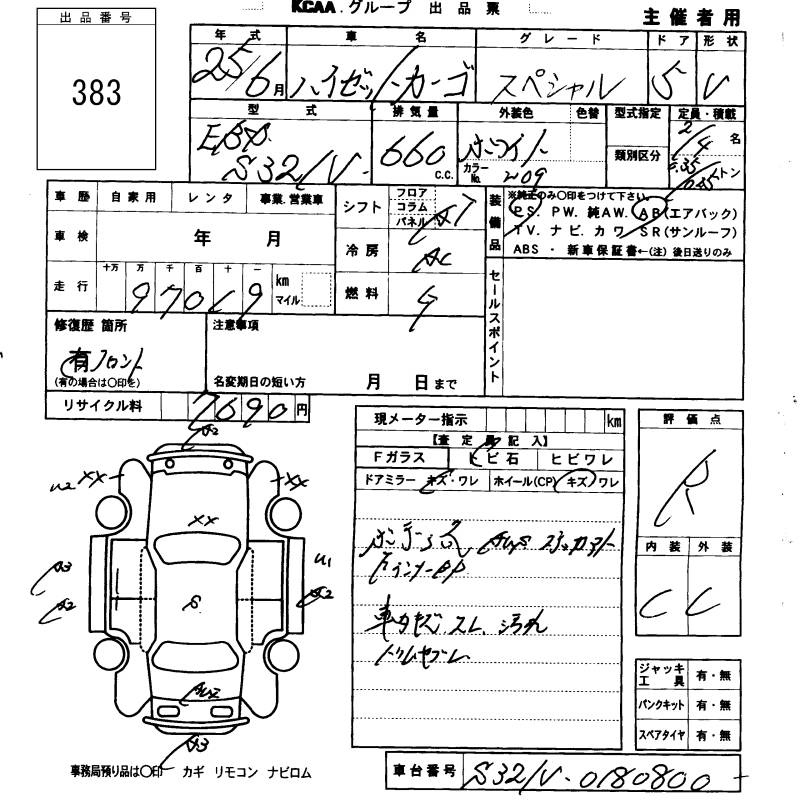 KCAA.グループ 出品票
主催者用
出品番号
383
年式 車名 グレード ドア 形状
25/6月 ハイゼットカーゴ スペシャル 5 V
型式 排気量 外装色 色替 型式指定 定員・積載
EBD- S321V- 660 c.c. ホワイト 類別区分 2/4 名
カラーNo. W09 0.35/0.25 トン
車歴 自家用 レンタ 事業.営業車
シフト フロア コラム パネル AT
装備品
※純正のみ〇印をつけて下さい。
PS. PW. 純AW. AB(エアバック)
TV. ナビ. カワ SR(サンルーフ)
ABS ・ 新車保証書←(注) 後日送りのみ
車検 年 月
冷房 AC
走行 十万 万 千 百 十 一
97019 km マイル
燃料 G
セールスポイント
修復歴 箇所
有 フロント
(有の場合は〇印を)
注意事項
名変期日の短い方 月 日まで
リサイクル料 7690円
現メーター指示 km
【査定員記入】
Fガラス トビ石 ヒビワレ
ドアミラー キズ・ワレ ホイール(CP) キズ/ワレ
評価点
R
内装 外装
C C
車内キズ. スレ. 汚れ
A2
U2 XX XX
XX
A3 U1
A2 A2
S
A3
ジャッキ工具 有・無
パンクキット 有・無
スペアタイヤ 有・無
事務局預り品は〇印 カギ リモコン ナビロム
車台番号 S321V-0180800